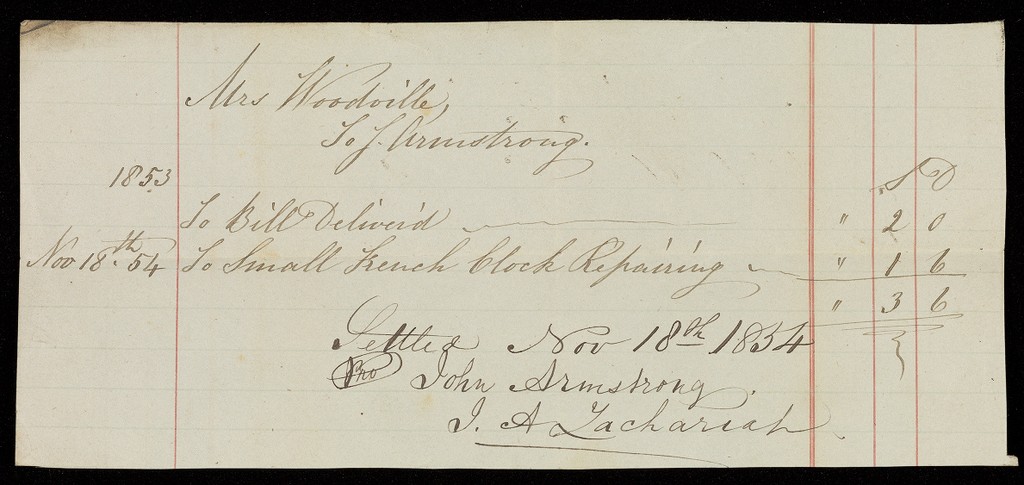 Mrs Woodville,
To J. Armstrong.
1853 S D
To Bill Deliver'd " 2 0
Nov 18th 54 To Small French Clock Repairing " 1 6
" 3 6
Settled Nov 18th 1854
Pro John Armstrong.
J. A Zachariah